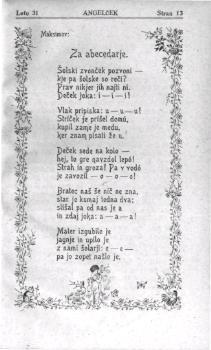 Leto 31 ANGELČEK Stran 13
Maksimov:
Za abecedarje.
Šolski zvonček pozvoni —
kje pa šolske so reči?
Prav nikjer jih najti ni.
Deček joka: i — i — i!
Vlak pripiska: u — u — u!
Striček je prišel domú,
kupil zame je medu,
ker znam pisati že u.
Deček sede na kolo —
hej, to gre navzdol lepó!
Strah in groza! Pa v vodó
je zavozil — o — o — o!
Bratec naš še nič ne zna,
star je komaj tedna dva;
slišal pa od nas je a
in zdaj joka: a — a — a!
Mater izgubilo je
jagnje in upilo je
z nami šolarji: e — e —
pa jo zopet našlo je.